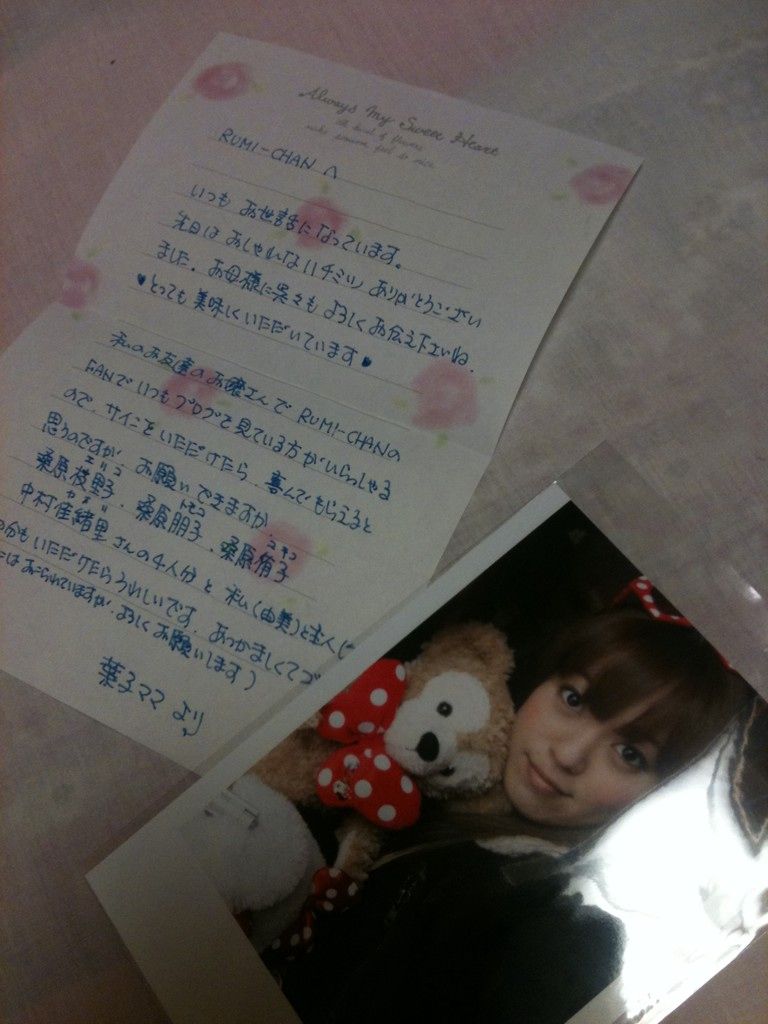 Always My Sweet Heart
RUMI-CHAN へ
いつも お世話になっています。
先日は おしゃれなハチミツ ありがとうござい
ました。お母様に呉々も よろしく お伝え下さいね。
♥とっても 美味しくいただいています♥
私のお友達の お嬢さんで RUMI-CHANの
FANで いつも ブログを見ている方が いらっしゃる
ので、サインを いただけたら、喜んで もらえると
思うのですが お願い できますか
エリコ トモコ ユキコ
桑原枝里子、桑原朋子、桑原侑子
カオリ
中村佳緒里 さんの4人分 と 私(由美)と主人(
の分も いただけたら うれしいです。あつかましくて
おこられていますが、よろしく お願いします)
葉子ママ より